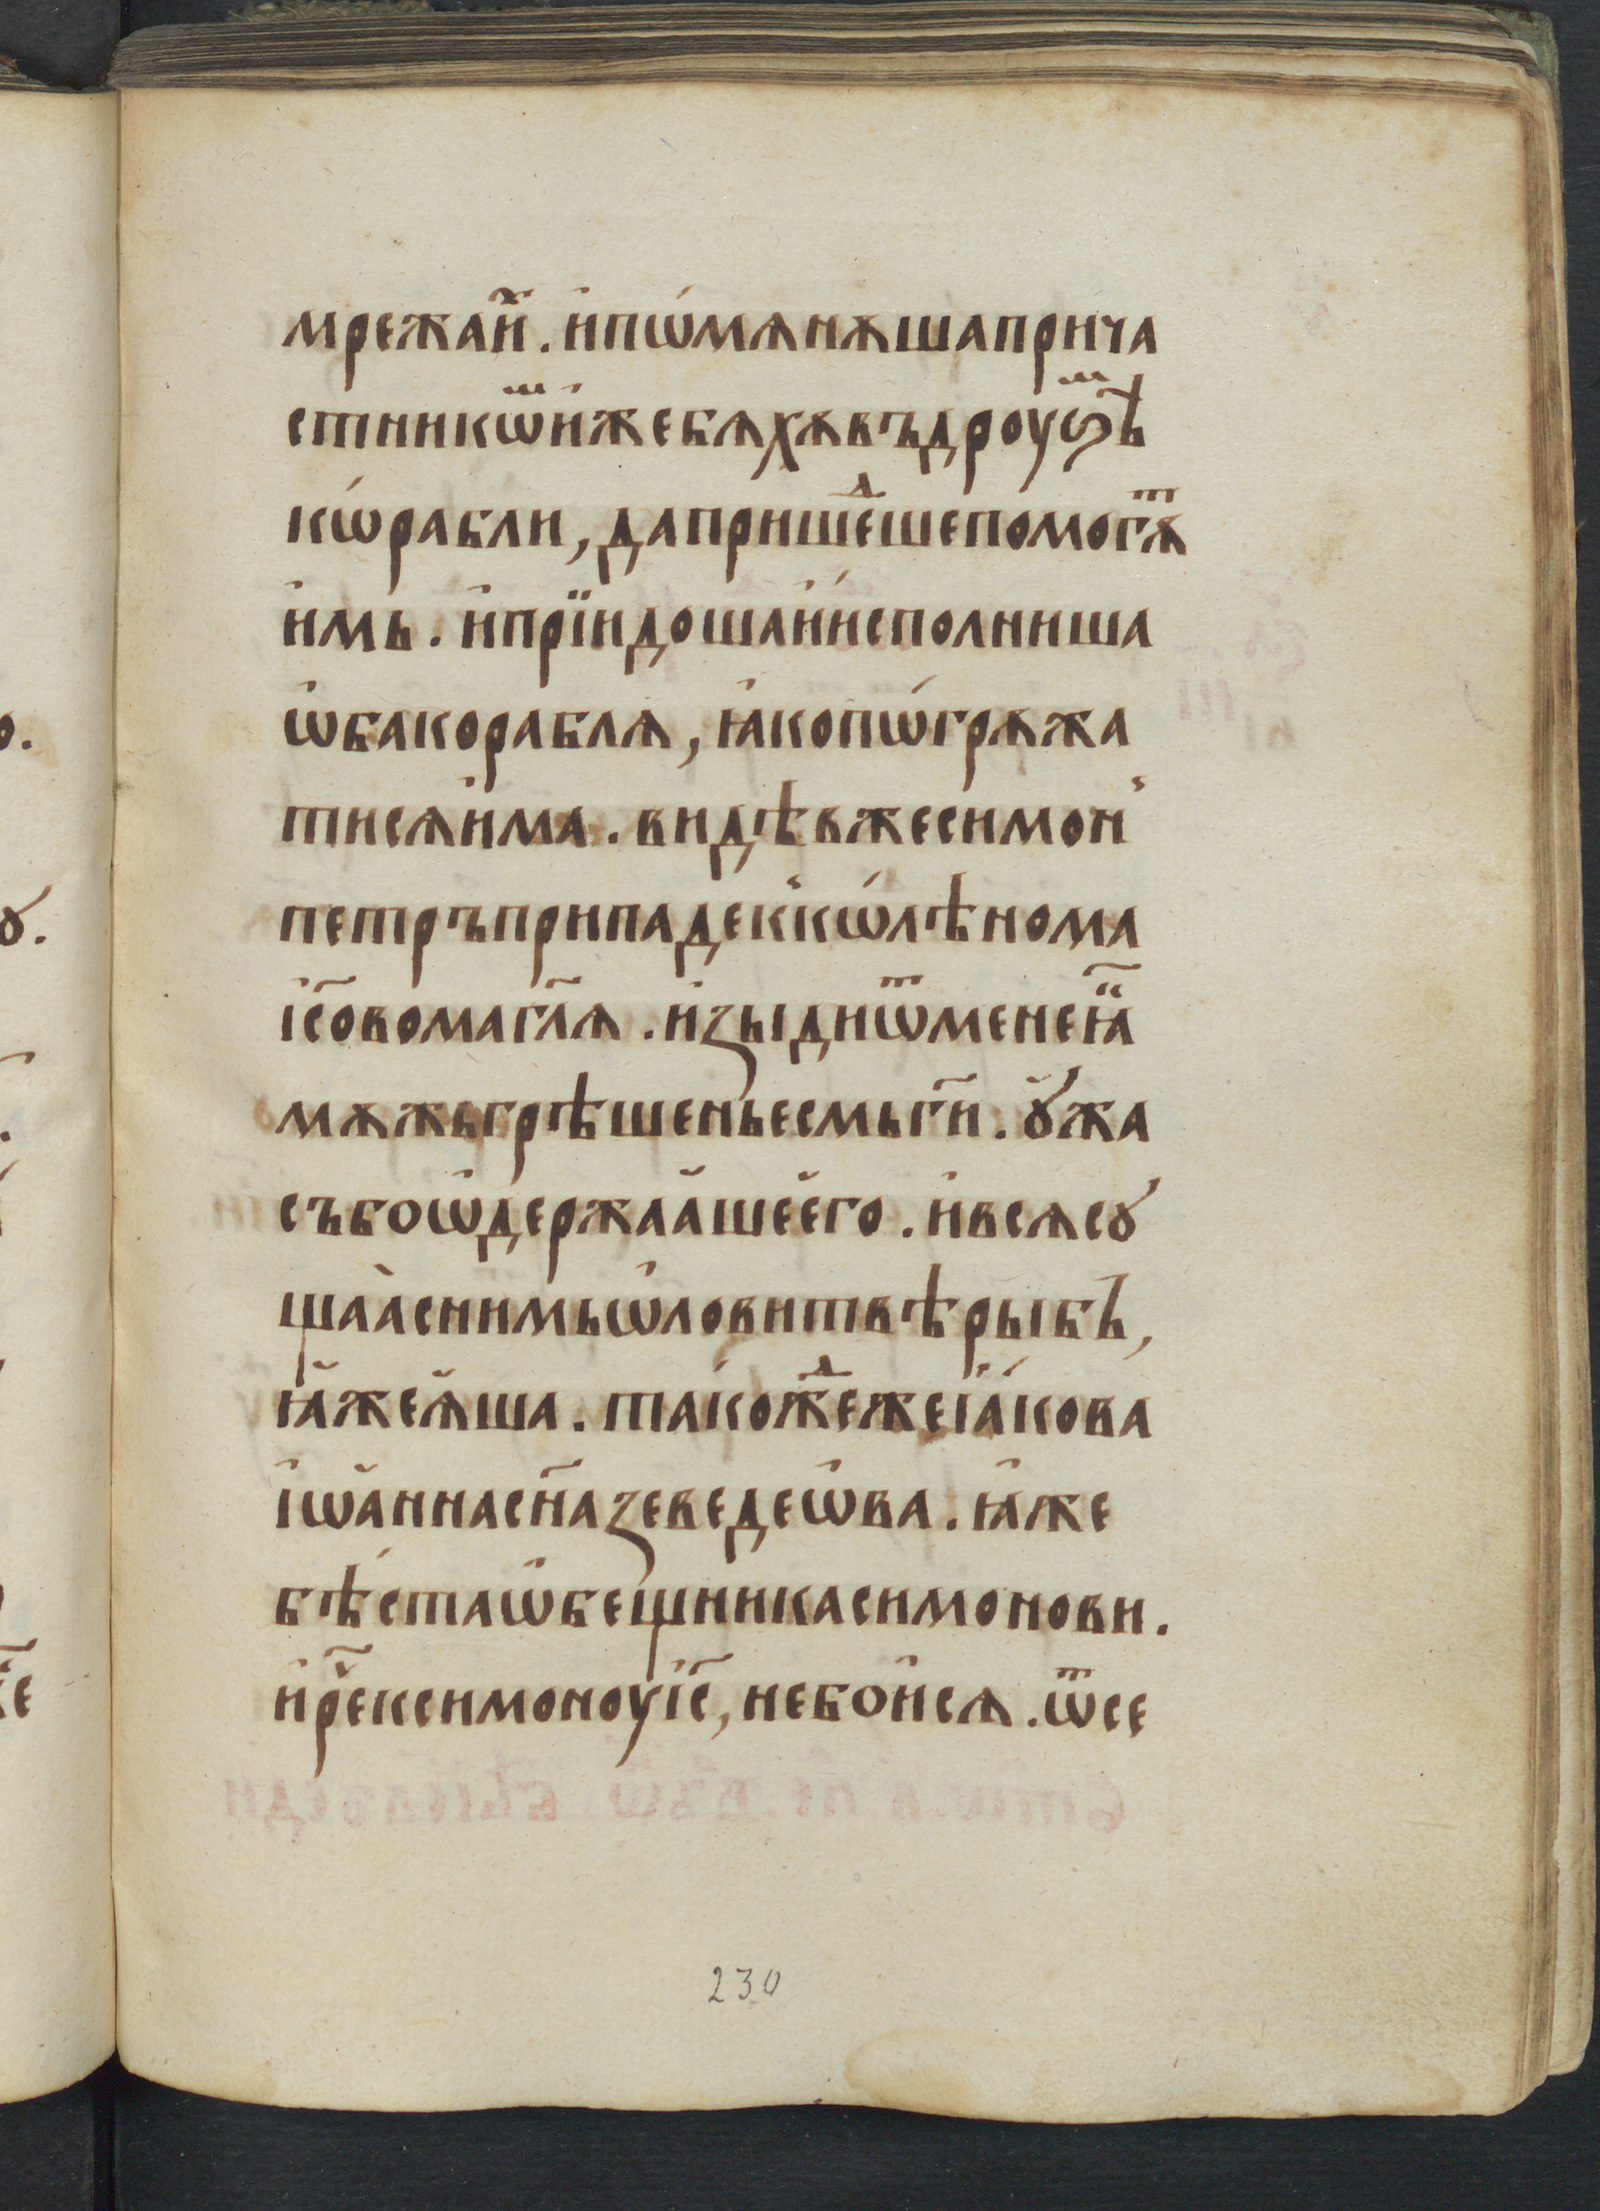 мрежаи҃. и҆пѡ́мѧнѫшапрнча
стникѡⷨи҆жебѧхѫвъдроуѕⷨѣ
кѡ́рабли, дапришеⷣшепомогѫⷮ
и҆мь. и҆прїидошаи҆и҆сполниша
ѡ҆бакораблѧ, ꙗ҆копѡ́грѫжа
тисѧи҆ма. видѣвжесимон
петръприпадек̾кѡ́лѣнома
і҆с҃овомагл҃ѧ. и҆ꙁыдиѿменеꙗ҃
мѫжьгрѣшеньесмьги҃. ꙋ҆жа
събоѡ҆держаашеего. и҆всѧсꙋ
щаа̀снимьѡ҆ловитвѣрыбъ,
ꙗ҆жеꙗша. такожⷣежеіа҆кова
і҆ѡа҆ннасн҃аꙁеведеѡ҆ва. ꙗ҆же
бѣ́стаѡ҆бещникасимонови.
и҆рч҃ексимоноуі҆с҃, небои҆сѧ. ѿсе
230